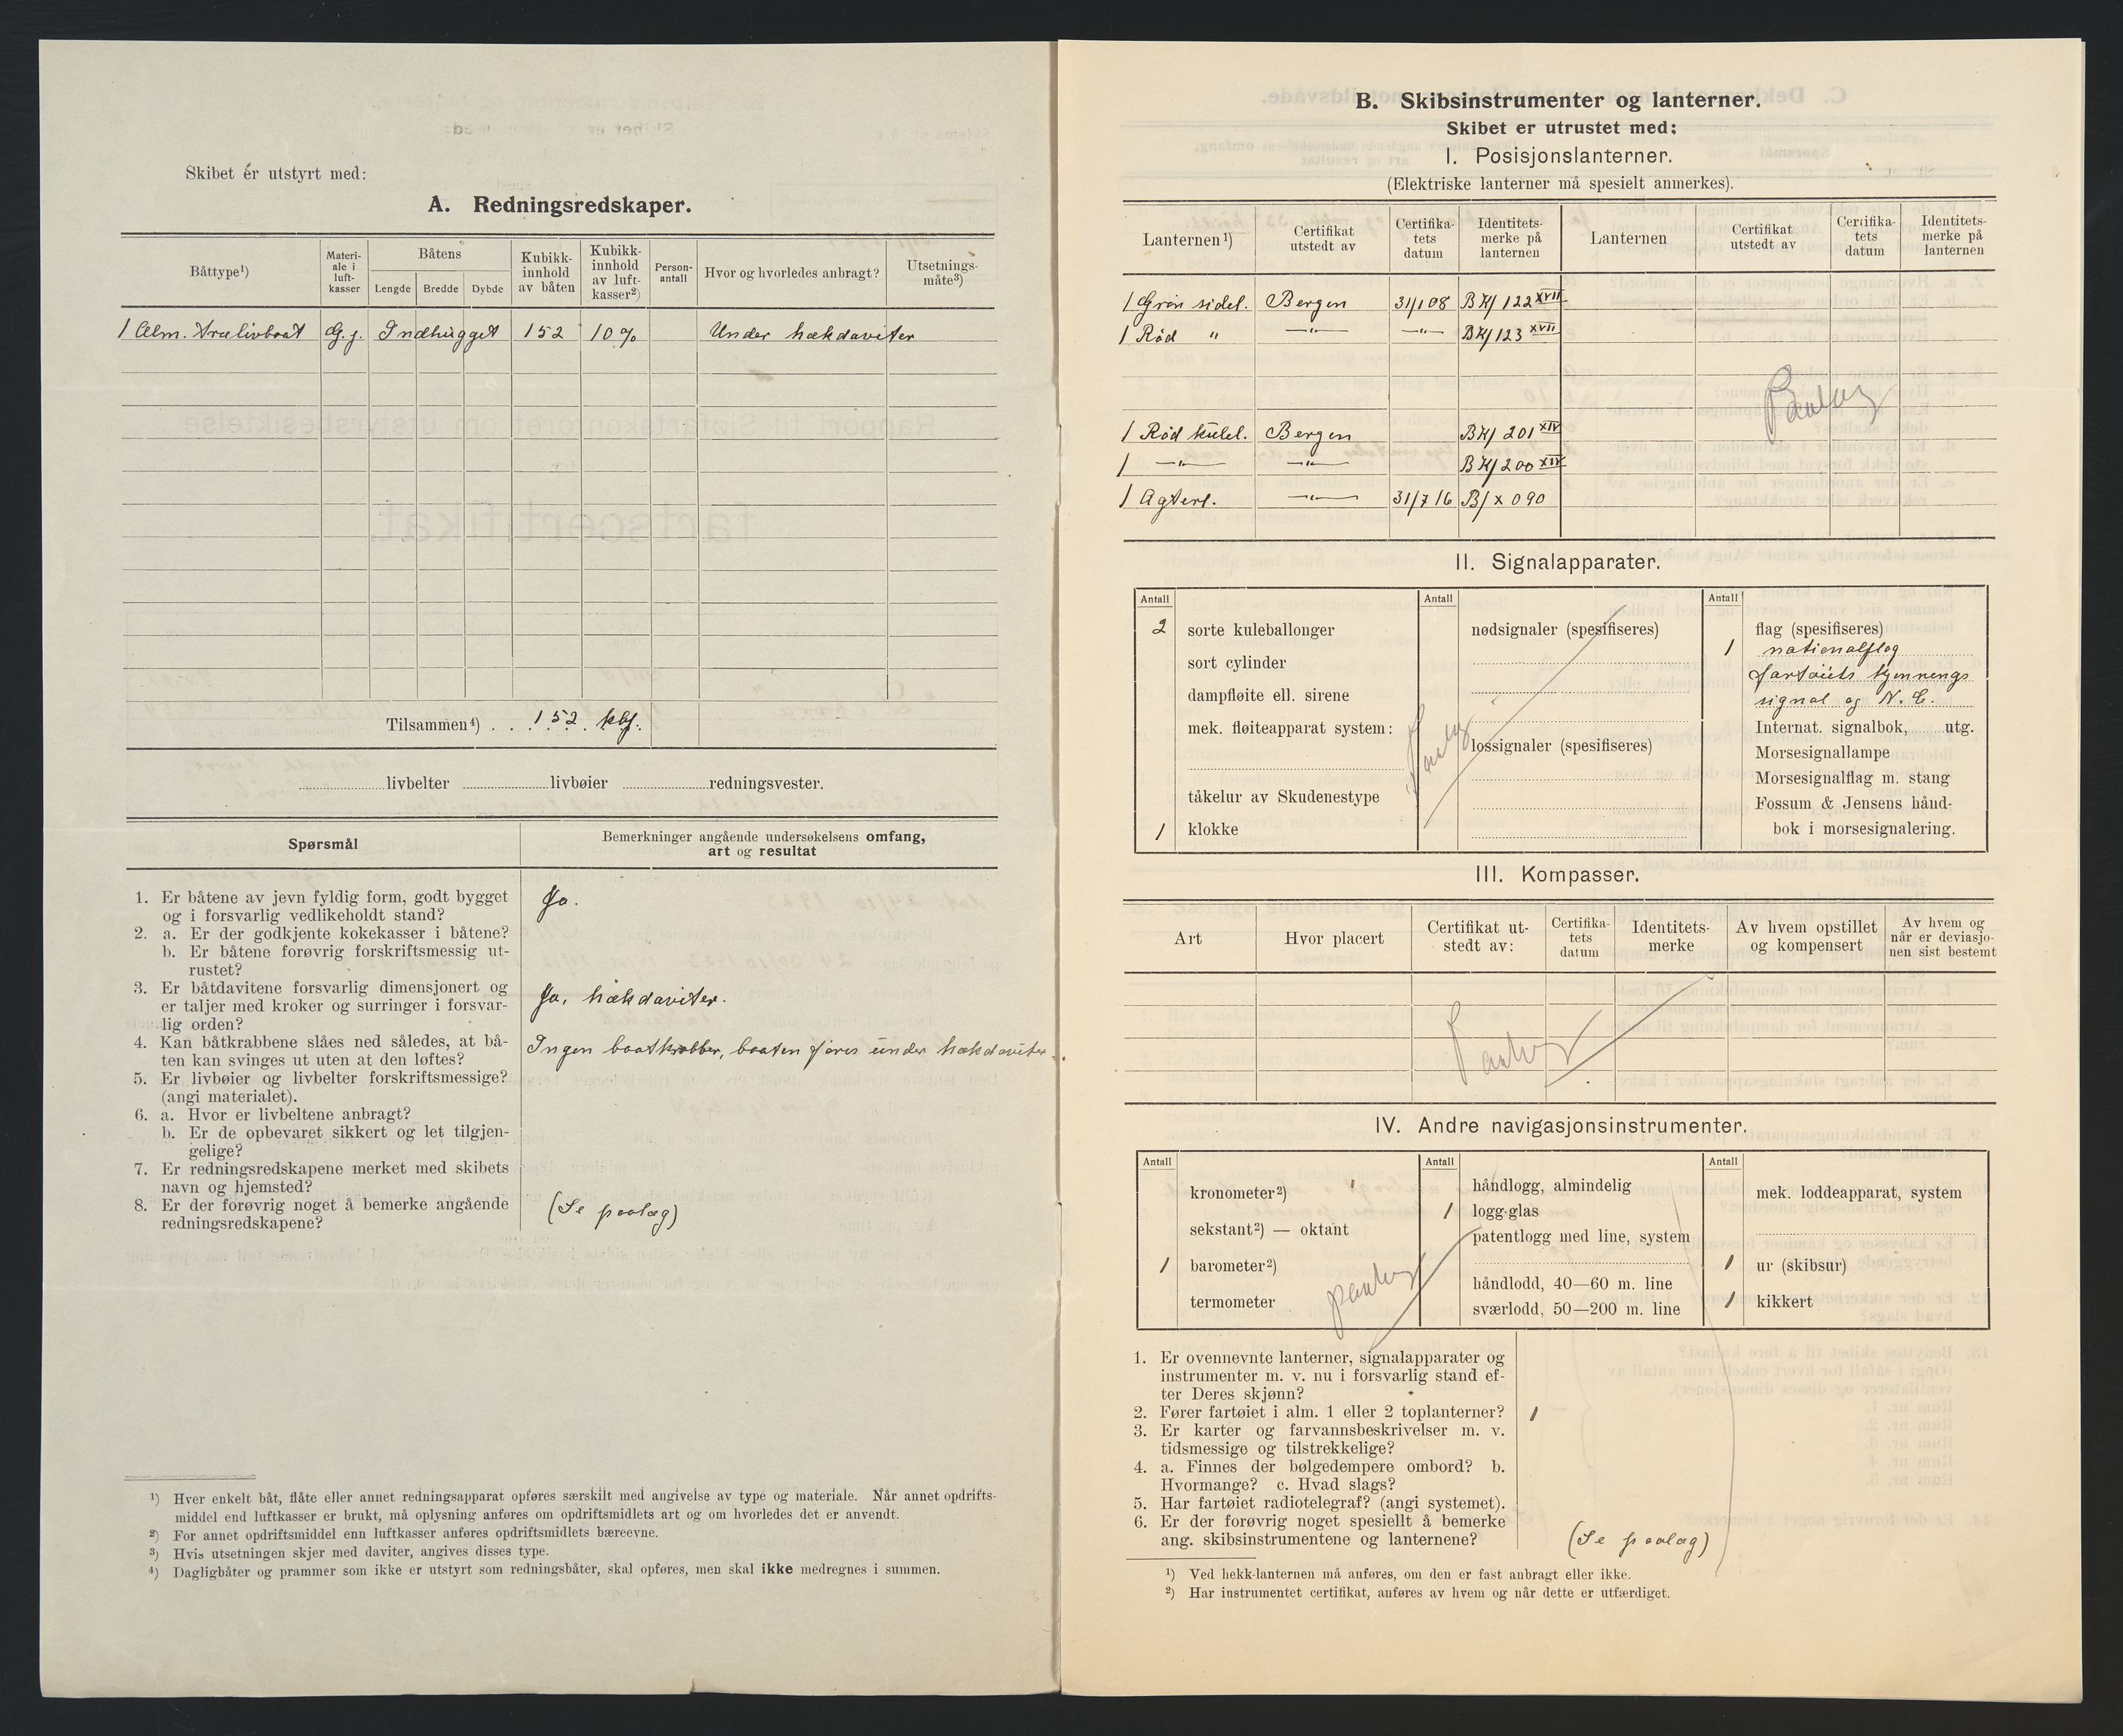 Skibet er utstyrt med:
A. Redningsredskaper.
Båttype¹) Materi-ale i luft-kasser Båtens Lengde Bredde Dybde Kubikk-innhold av båten Kubikk-innhold av luft-kasser²) Person-antall Hvor og hvorledes anbragt? Utsetnings-måte³)
1 Alm. trælivbaat G.j. Indhugget 152 10% Under hækdaviter
Tilsammen⁴) . . 152 kbf.
livbelter livbøier redningsvester.
Spørsmål
Bemerkninger angående undersøkelsens omfang,
art og resultat
1. Er båtene av jevn fyldig form, godt bygget
og i forsvarlig vedlikeholdt stand?
Ja.
2. a. Er der godkjente kokekasser i båtene?
b. Er båtene forøvrig forskriftsmessig ut-
rustet?
3. Er båtdavitene forsvarlig dimensjonert og
er taljer med kroker og surringer i forsvar-
lig orden?
Ja, hækdaviter.
4. Kan båtkrabbene slåes ned således, at bå-
ten kan svinges ut uten at den løftes?
Ingen baatkrabber, baaten føres under hækdaviter.
5. Er livbøier og livbelter forskriftsmessige?
(angi materialet).
6. a. Hvor er livbeltene anbragt?
b. Er de opbevaret sikkert og let tilgjen-
gelige?
7. Er redningsredskapene merket med skibets
navn og hjemsted?
8. Er der forøvrig noget å bemerke angående
redningsredskapene?
(Se paalæg)
¹) Hver enkelt båt, flåte eller annet redningsapparat opføres særskilt med angivelse av type og materiale. Når annet opdrifts-
middel end luftkasser er brukt, må oplysning anføres om opdriftsmidlets art og om hvorledes det er anvendt.
²) For annet opdriftsmiddel enn luftkasser anføres opdriftsmidlets bæreevne.
³) Hvis utsetningen skjer med daviter, angives disses type.
⁴) Dagligbåter og prammer som ikke er utstyrt som redningsbåter, skal opføres, men skal ikke medregnes i summen.
B. Skibsinstrumenter og lanterner.
Skibet er utrustet med:
I. Posisjonslanterner.
(Elektriske lanterner må spesielt anmerkes).
Lanternen¹) Certifikat utstedt av Certifika-tets datum Identitets-merke på lanternen Lanternen Certifikat utstedt av Certifika-tets datum Identitets-merke på lanternen
1 Grøn sidel. Bergen 31/1 08 BH/122 XVII
1 Rød " —"— —"— BH/123 XVII
Paalag
1 Rød kulel. Bergen BH/201 XIV
1 —"— —"— BH/200 XIV
1 Agterl. —"— 31/7 16 B/x 090
II. Signalapparater.
Antall
2 sorte kuleballonger
sort cylinder
dampfløite ell. sirene
mek. fløiteapparat system:
tåkelur av Skudenestype
1 klokke
Paalag
Antall
nødsignaler (spesifiseres)
lossignaler (spesifiseres)
Antall
flag (spesifiseres)
1 nationalflag
fartøiets kjennings
signal og N. C.
Internat. signalbok, utg.
Morsesignallampe
Morsesignalflag m. stang
Fossum & Jensens hånd-
bok i morsesignalering.
III. Kompasser.
Art Hvor placert Certifikat ut-stedt av: Certifika-tets datum Identitets-merke Av hvem opstillet og kompensert Av hvem og når er deviasjo-nen sist bestemt
Paalag
IV. Andre navigasjonsinstrumenter.
Antall
kronometer²)
sekstant²) — oktant
1 barometer²)
termometer
paalag
Antall
håndlogg, almindelig
1 logg-glas
patentlogg med line, system
håndlodd, 40—60 m. line
sværlodd, 50—200 m. line
Antall
mek. loddeapparat, system
1 ur (skibsur)
1 kikkert
1. Er ovennevnte lanterner, signalapparater og
instrumenter m. v. nu i forsvarlig stand ef-
ter Deres skjønn?
2. Fører fartøiet i alm. 1 eller 2 toplanterner? 1
3. Er karter og farvannsbeskrivelser m. v.
tidsmessige og tilstrekkelige?
4. a. Finnes der bølgedempere ombord? b.
Hvormange? c. Hvad slags?
5. Har fartøiet radiotelegraf? (angi systemet).
6. Er der forøvrig noget spesiellt å bemerke
ang. skibsinstrumentene og lanternene?
(Se paalag)
¹) Ved hekk-lanternen må anføres, om den er fast anbragt eller ikke.
²) Har instrumentet certifikat, anføres av hvem og når dette er utfærdiget.